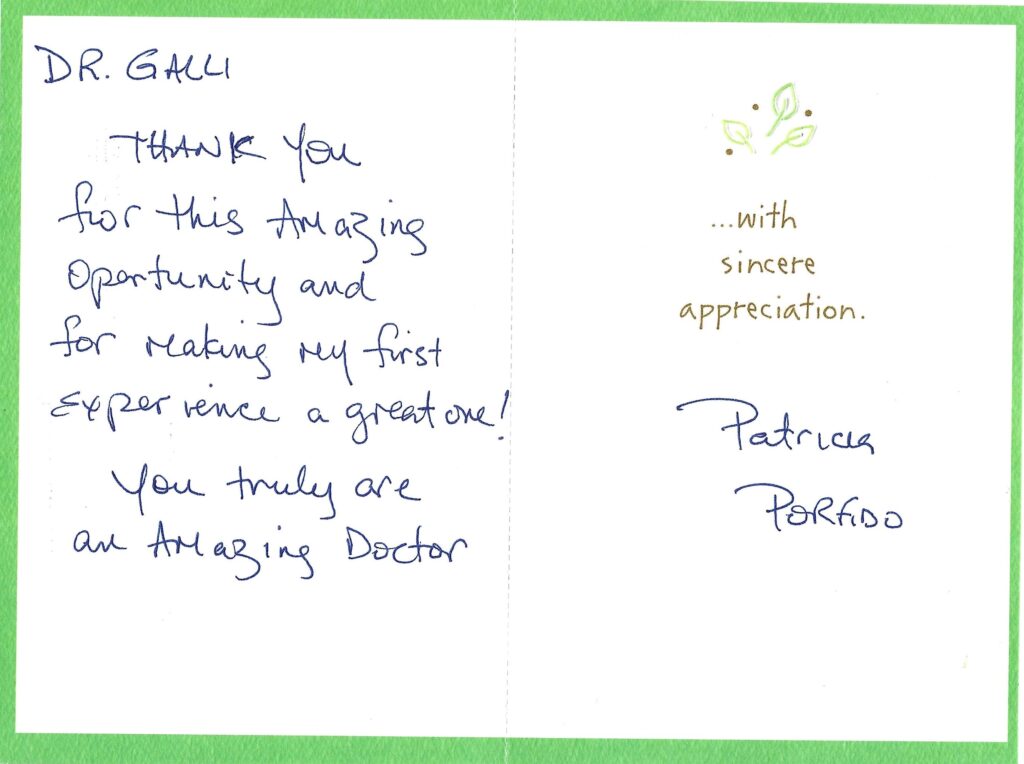 DR. GALLI
THANK You
for this Amazing
Oportunity and
for making my first
Experience a great one!
You truly are
an Amazing Doctor
...with
sincere
appreciation.
Patricia
PORFIDO